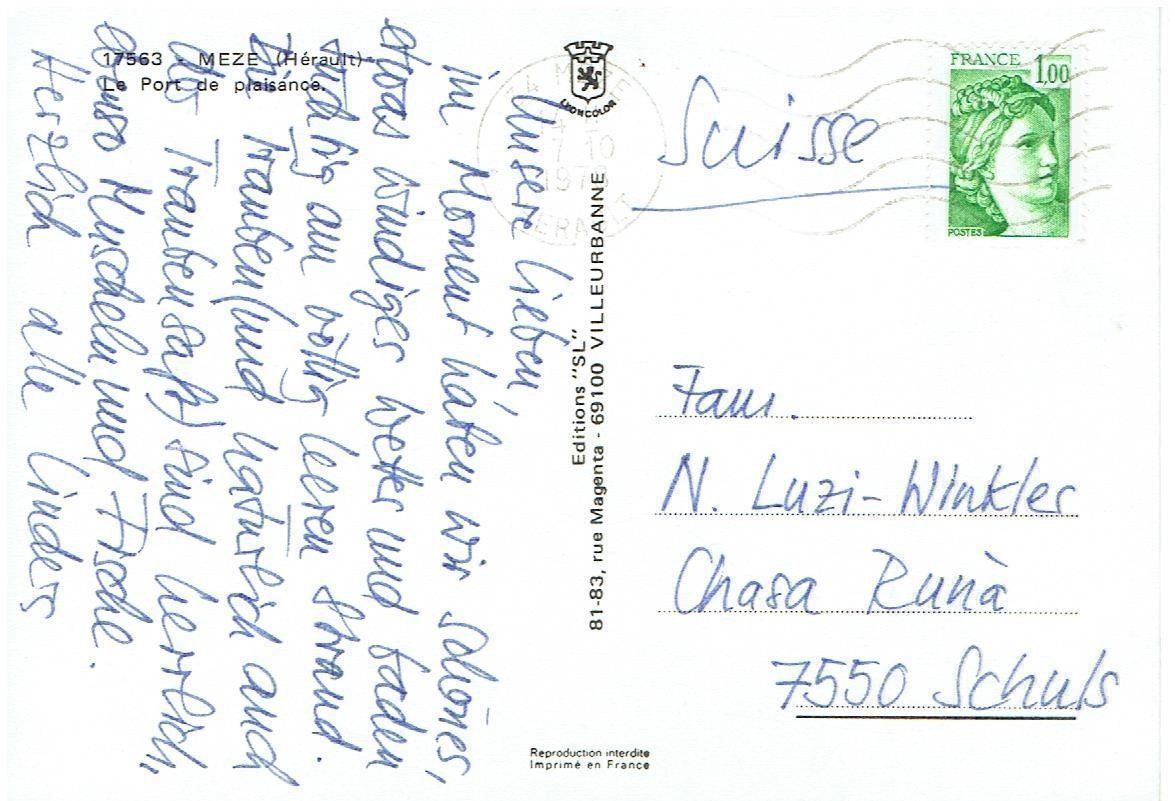 17563 - MEZE (Hérault)
Le Port de plaisance.
Unsere Lieben,
im Moment haben wir schönes,
etwas windiges Wetter und baden
am völlig leeren Strand.
Die Trauben (und natürlich auch
der Traubensaft) sind herrlich,
ebenso Muscheln und Fische.
Herzlich alle Linders
LYONCOLOR
Editions "SL"
81-83, rue Magenta - 69100 VILLEURBANNE
Reproduction interdite
Imprimé en France
FRANCE 1,00
POSTES
7-10
Suisse
Fam.
N. Luzi-Winkler
Chasa Runà
7550 Schuls